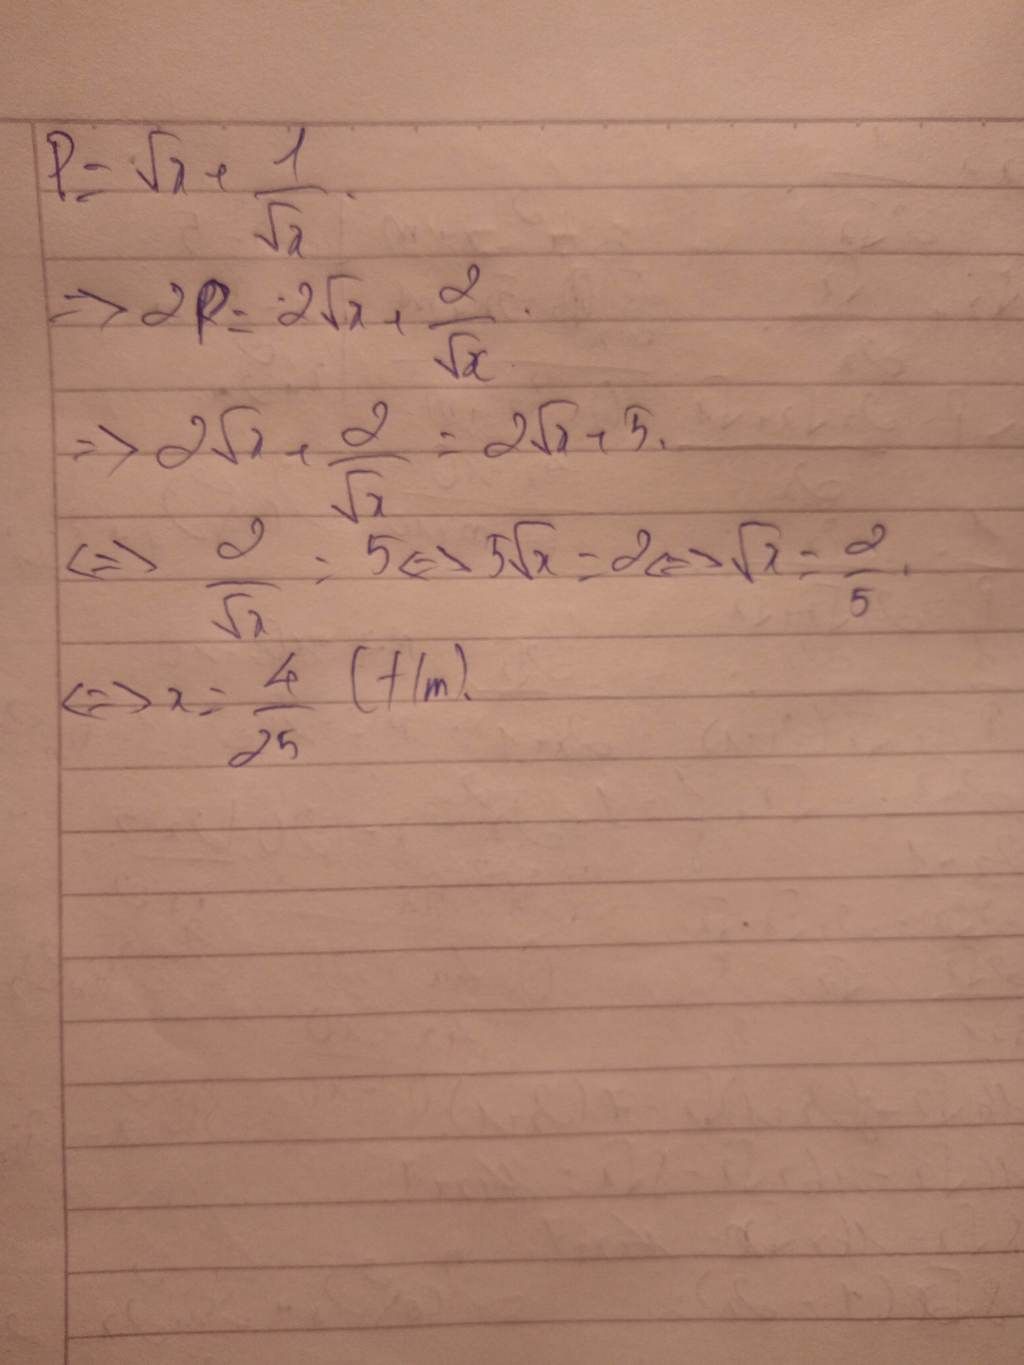 P = √x + 1/√x .
=> 2P = 2√x + 2/√x .
=> 2√x + 2/√x = 2√x + 5.
<=> 2/√x = 5 <=> 5√x = 2 <=> √x = 2/5 .
<=> x = 4/25 (t/m).